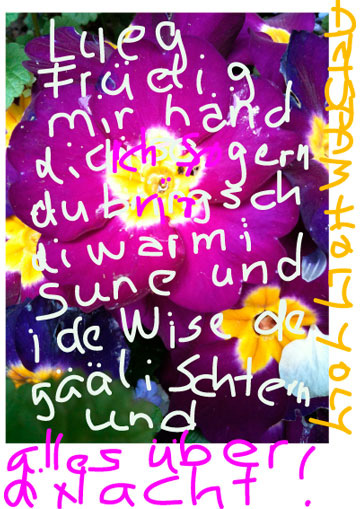 Lueg
Früelig
mir hand
dich so gern
du bringsch
di warmi
Sune und
i de Wise de
gääli Schtern
und
alles über
d Nacht!